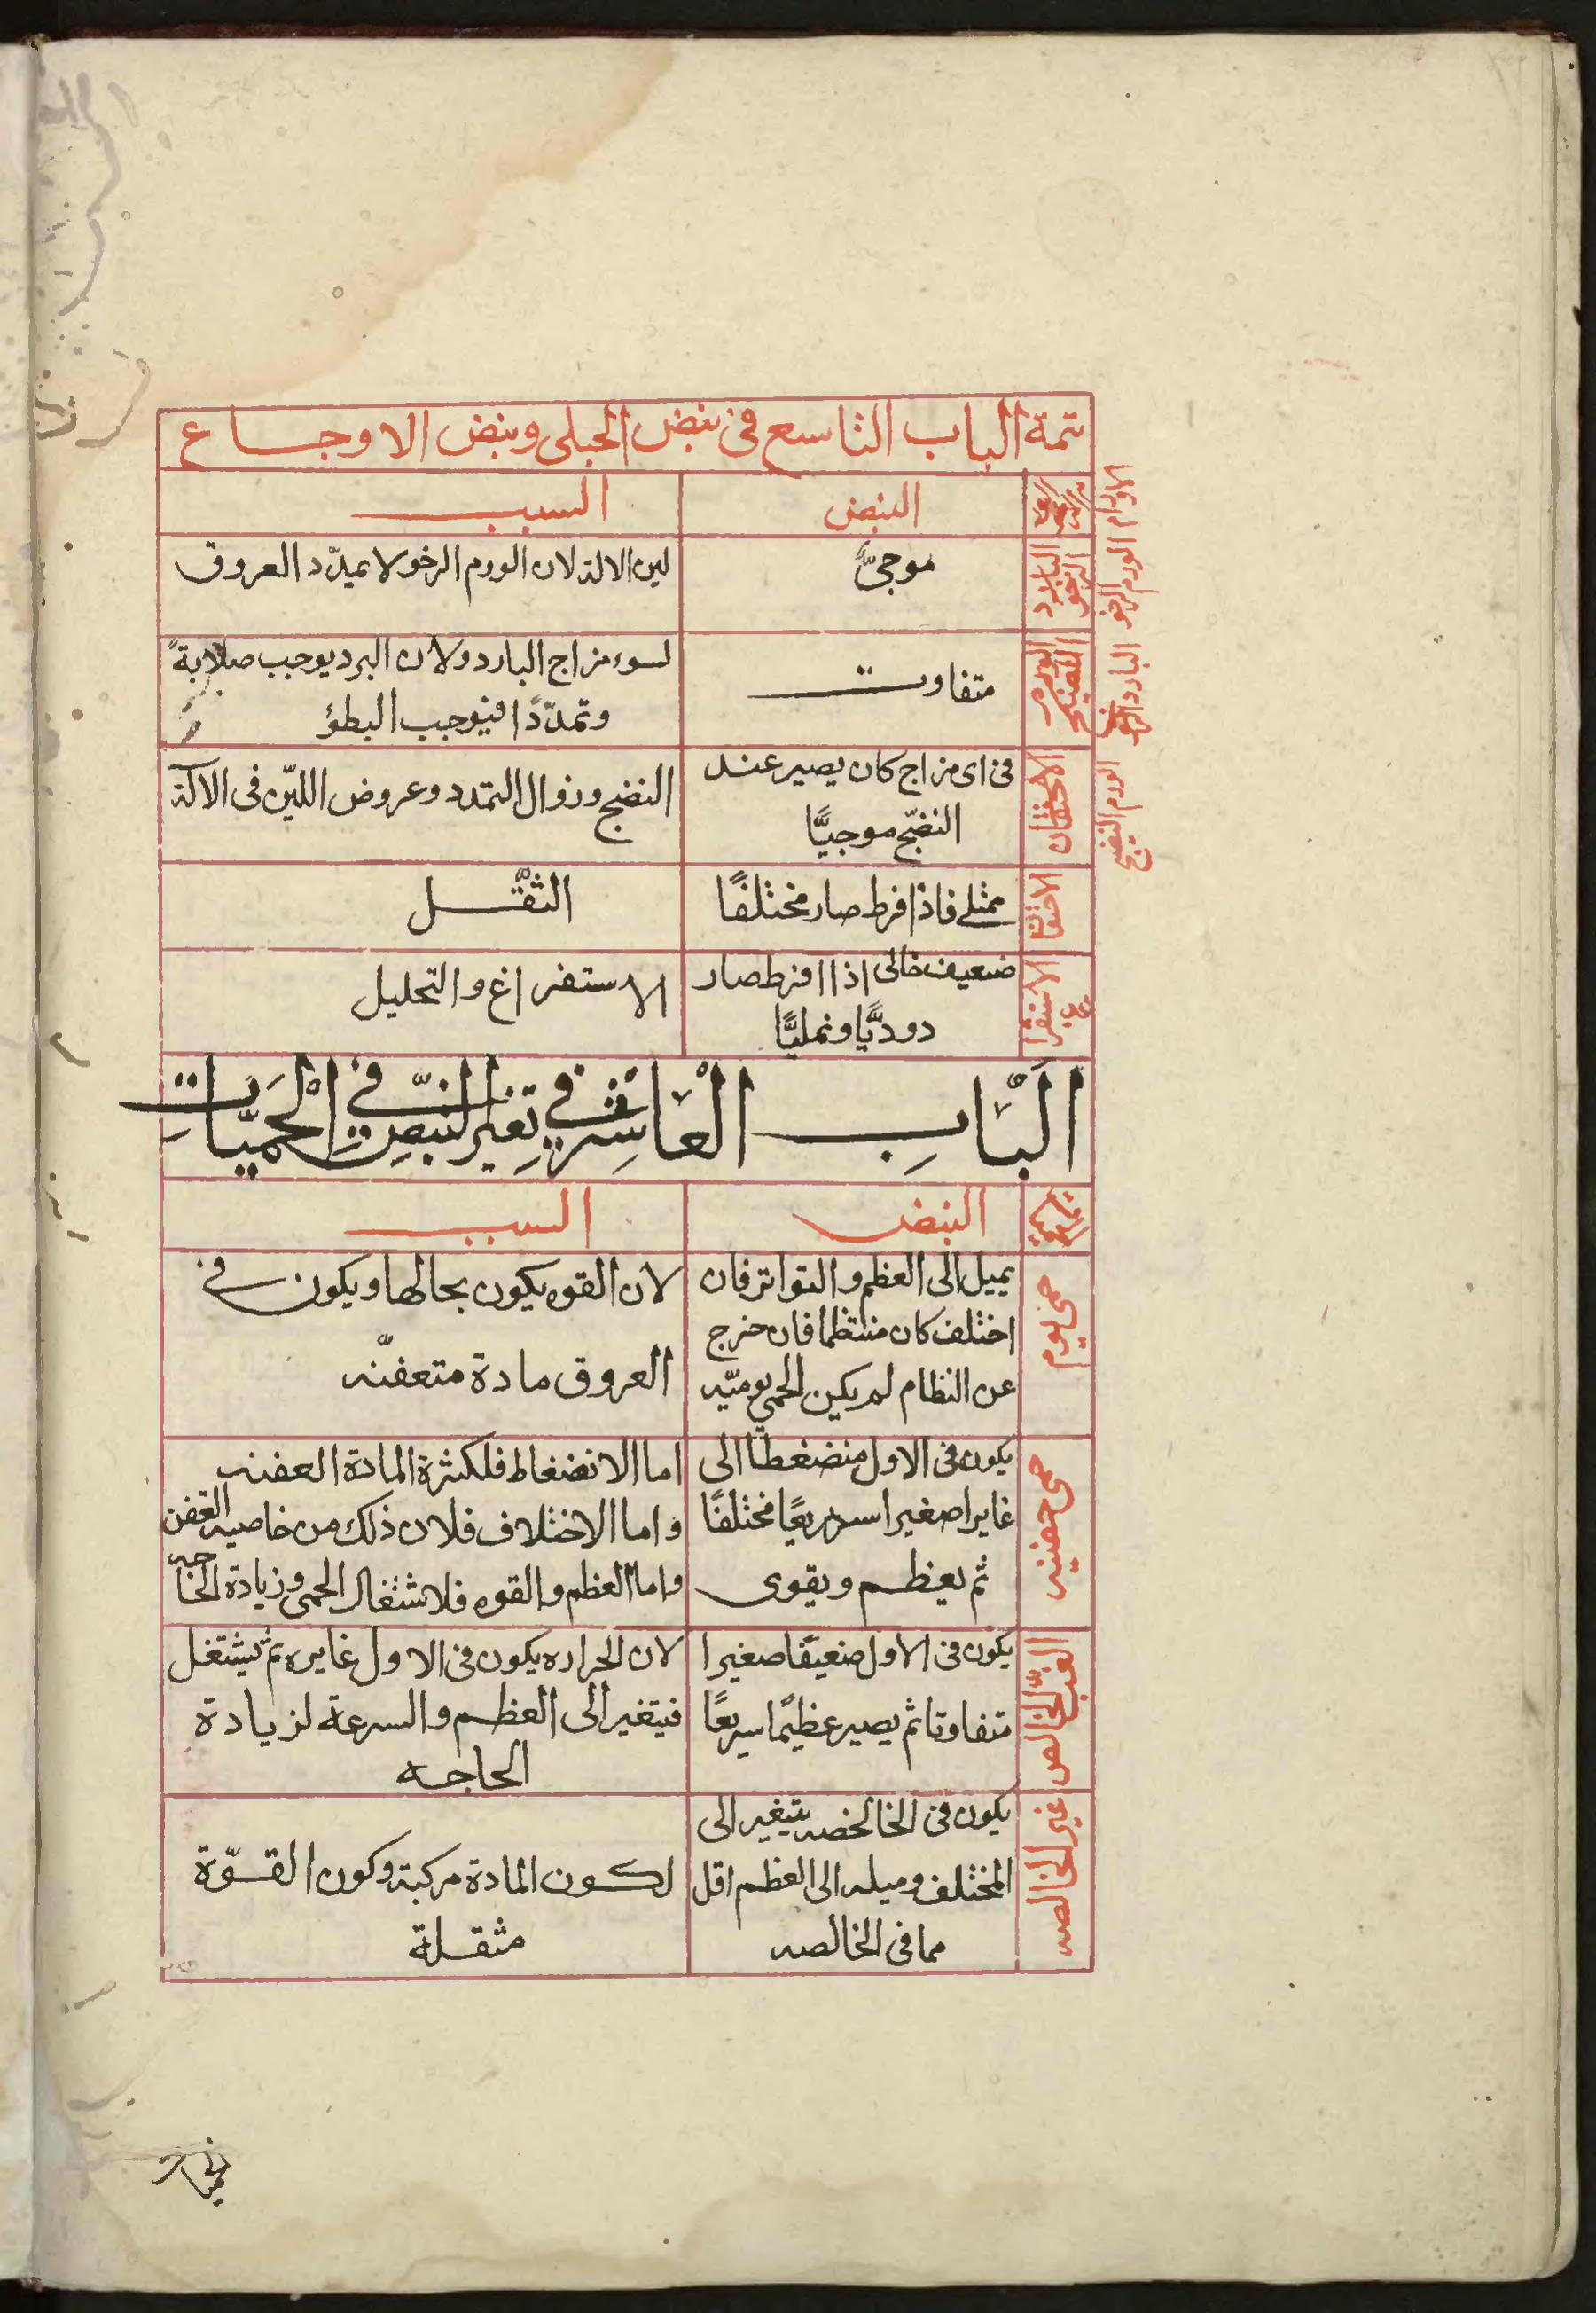 تتمة الباب التاسع فى نبض الحبلى ونبض الاوجاع
النبض
السبب
الاورام
الورم الرخو
البارد الرخو
موجىٌّ
لين الالة لان الورم الرخو لا يمدّد العروق
البارد
الورم النضيج
متفاوت
لسوء مزاج البارد ولان البرد يوجب صلابةً
وتمدّدًا فيوجب البطؤ
الورم النضيج
الاحتقان
فى اى مزاج كان يصير عند
النضج موجيًّا
النضج وزوال التمدد وعروض اللين فى الالة
الاحتقان
ممتلى فاذا افرط صار مختلفًا
الثقل
الاستفراغ
ضعيف خالى اذا افرط صار
دوديًّا ونمليًّا
الاستفراغ والتحليل
الباب العاشر فى تغير النبض فى الحميات
النبض
السبب
حمى يوم
يميل الى العظم والتواتر فان
اختلف كان منتظما فان خرج
عن النظام لم يكن الحمى يوميّه
لان القوه يكون بحالها ويكون فى
العروق مادة متعفنّه
يكون فى الاول منضغطا الى
غايرا صغيرا سريعًا مختلفًا
ثم يعظم ويقوى
اما الانضغاط فلكثرة المادة العفنه
واما الاختلاف فلان ذلك من خاصيه التعفن
واما العظم والقوه فلاشتغال الحمى وزيادة الحاجه
الغب الخالص
يكون فى الاول ضعيفا صغيرا
متفاوتا ثم يصير عظيمًا سريعًا
لان الحراره يكون فى الاول غايره ثم يشتغل
فيتغير الى العظم والسرعة لزيادة
الحاجه
غير الخالصه
يكون فى الخالصه يتغير الى
المختلف وميله الى العظم اقل
مما فى الخالصه
لكون المادة مركبة وكون القوّة
مثقلة